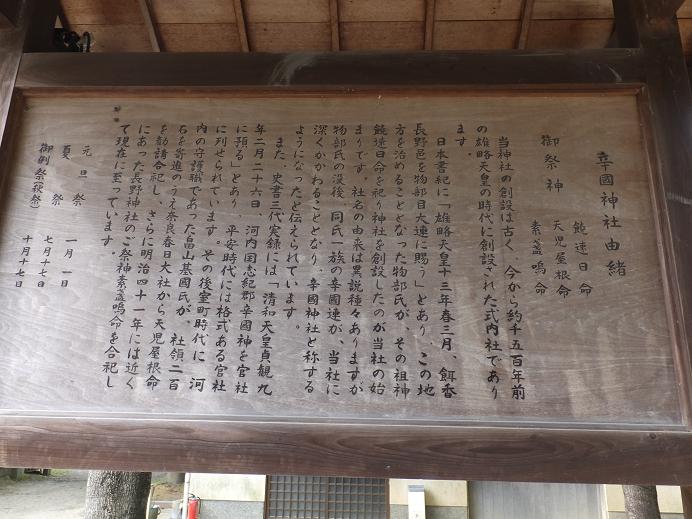 辛國神社由緒
御祭神　饒速日命
天児屋根命
素盞嗚命
当神社の創設は古く、今から約千五百年前
の雄略天皇の時代に創設された式内社であり
ます。
日本書紀に「雄略天皇十三年春三月、餌香
長野邑を物部目大連に賜う」とあり、この地
方を治めることとなった物部氏が、その祖神
饒速日命を祀り神社を創設したのが当社の始
まりです。社名の由来は異説種々ありますが
物部氏の没後、同氏一族の辛國連が、当社に
深くかかわることとなり、辛國神社と称する
ようになったと伝えられています。
また、史書三代実録には「清和天皇貞観九
年二月二十六日、河内国志紀郡辛國神を官社
に預る」とあり、平安時代には格式ある官社
に列せられています。その後室町時代に、河
内の守護職であった畠山基國氏が、社領二百
石を寄進のうえ奈良春日大社から天児屋根命
を勧請合祀し、さらに明治四十一年には近く
にあった長野神社のご祭神素盞嗚命を合祀し
て現在に至っています。
元旦祭　一月一日
夏祭　七月十七日
御例祭（秋祭）　十月十七日